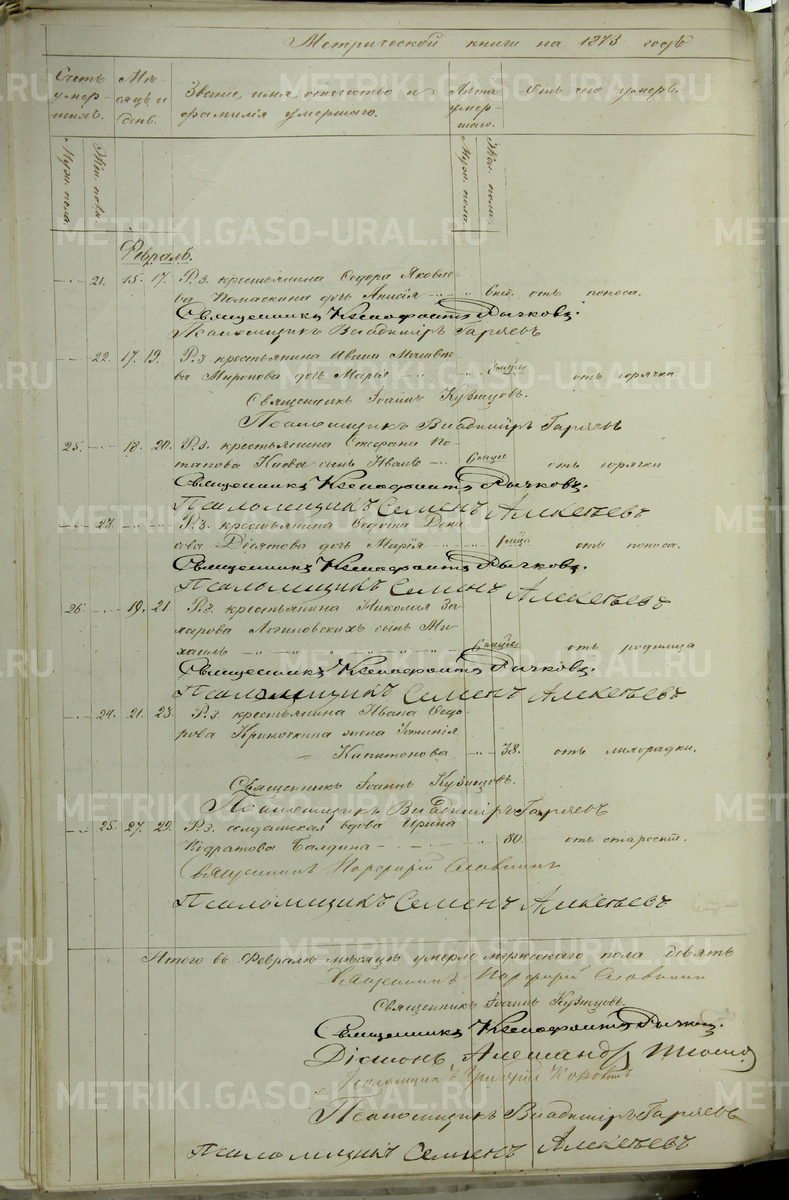 Метрической книги на 1873 годъ
Счетъ умершихъ.
Мѣсяцъ и день.
Званіе, имя, отчество и фамилія умершаго.
Лѣта умершаго.
Отъ чего умеръ.
Муж. пола.
Жен. пола.
Муж. пола.
Жен. пола.
Февраль.
21. 15. 17. Р. З. крестьянина Ѳедора Яковле-
ва дочь Анисія отъ поноса.
Священникъ Ксенофонтъ Рычковъ.
Псаломщикъ Владиміръ Гаряевъ
22. 17. 19. Р. З. крестьянина Ивана Матвѣе-
ва Миронова дочь Марія отъ горячки
Священникъ Іоаннъ Кузнецовъ.
Псаломщикъ Владиміръ Гаряевъ
25. 18. 20. Р. З. крестьянина Стефана По-
тапова сынъ Иванъ отъ горячки
Священникъ Ксенофонтъ Рычковъ.
Псаломщикъ Семенъ Алексѣевъ
23. Р. З. крестьянина
дочь Марія 1 мѣс. отъ поноса.
Священникъ Ксенофонтъ Рычковъ.
Псаломщикъ Семенъ Алексѣевъ
26. 19. 21. Р. З. крестьянина Николая За-
харова Логиновскихъ сынъ Ми-
хаилъ отъ родимца
Священникъ Ксенофонтъ Рычковъ.
Псаломщикъ Семенъ Алексѣевъ
24. 21. 23. Р. З. крестьянина Ивана Ѳедо-
рова жена
Капитонова 38. отъ лихорадки.
Священникъ Іоаннъ Кузнецовъ.
Псаломщикъ Владиміръ Гаряевъ
25. 27. 29. Р. З. солдатская вдова Ирина
80. отъ старости.
Священникъ Порфирій Славнинъ
Псаломщикъ Семенъ Алексѣевъ
Итого въ Февралѣ мѣсяцѣ умерло мужескаго пола девять
Священникъ Порфирій Славнинъ
Священникъ Іоаннъ Кузнецовъ.
Священникъ Ксенофонтъ Рычковъ.
Діаконъ Александръ
Псаломщикъ Григорій
Псаломщикъ Владиміръ Гаряевъ
Псаломщикъ Семенъ Алексѣевъ
METRIKI.GASO-URAL.RU